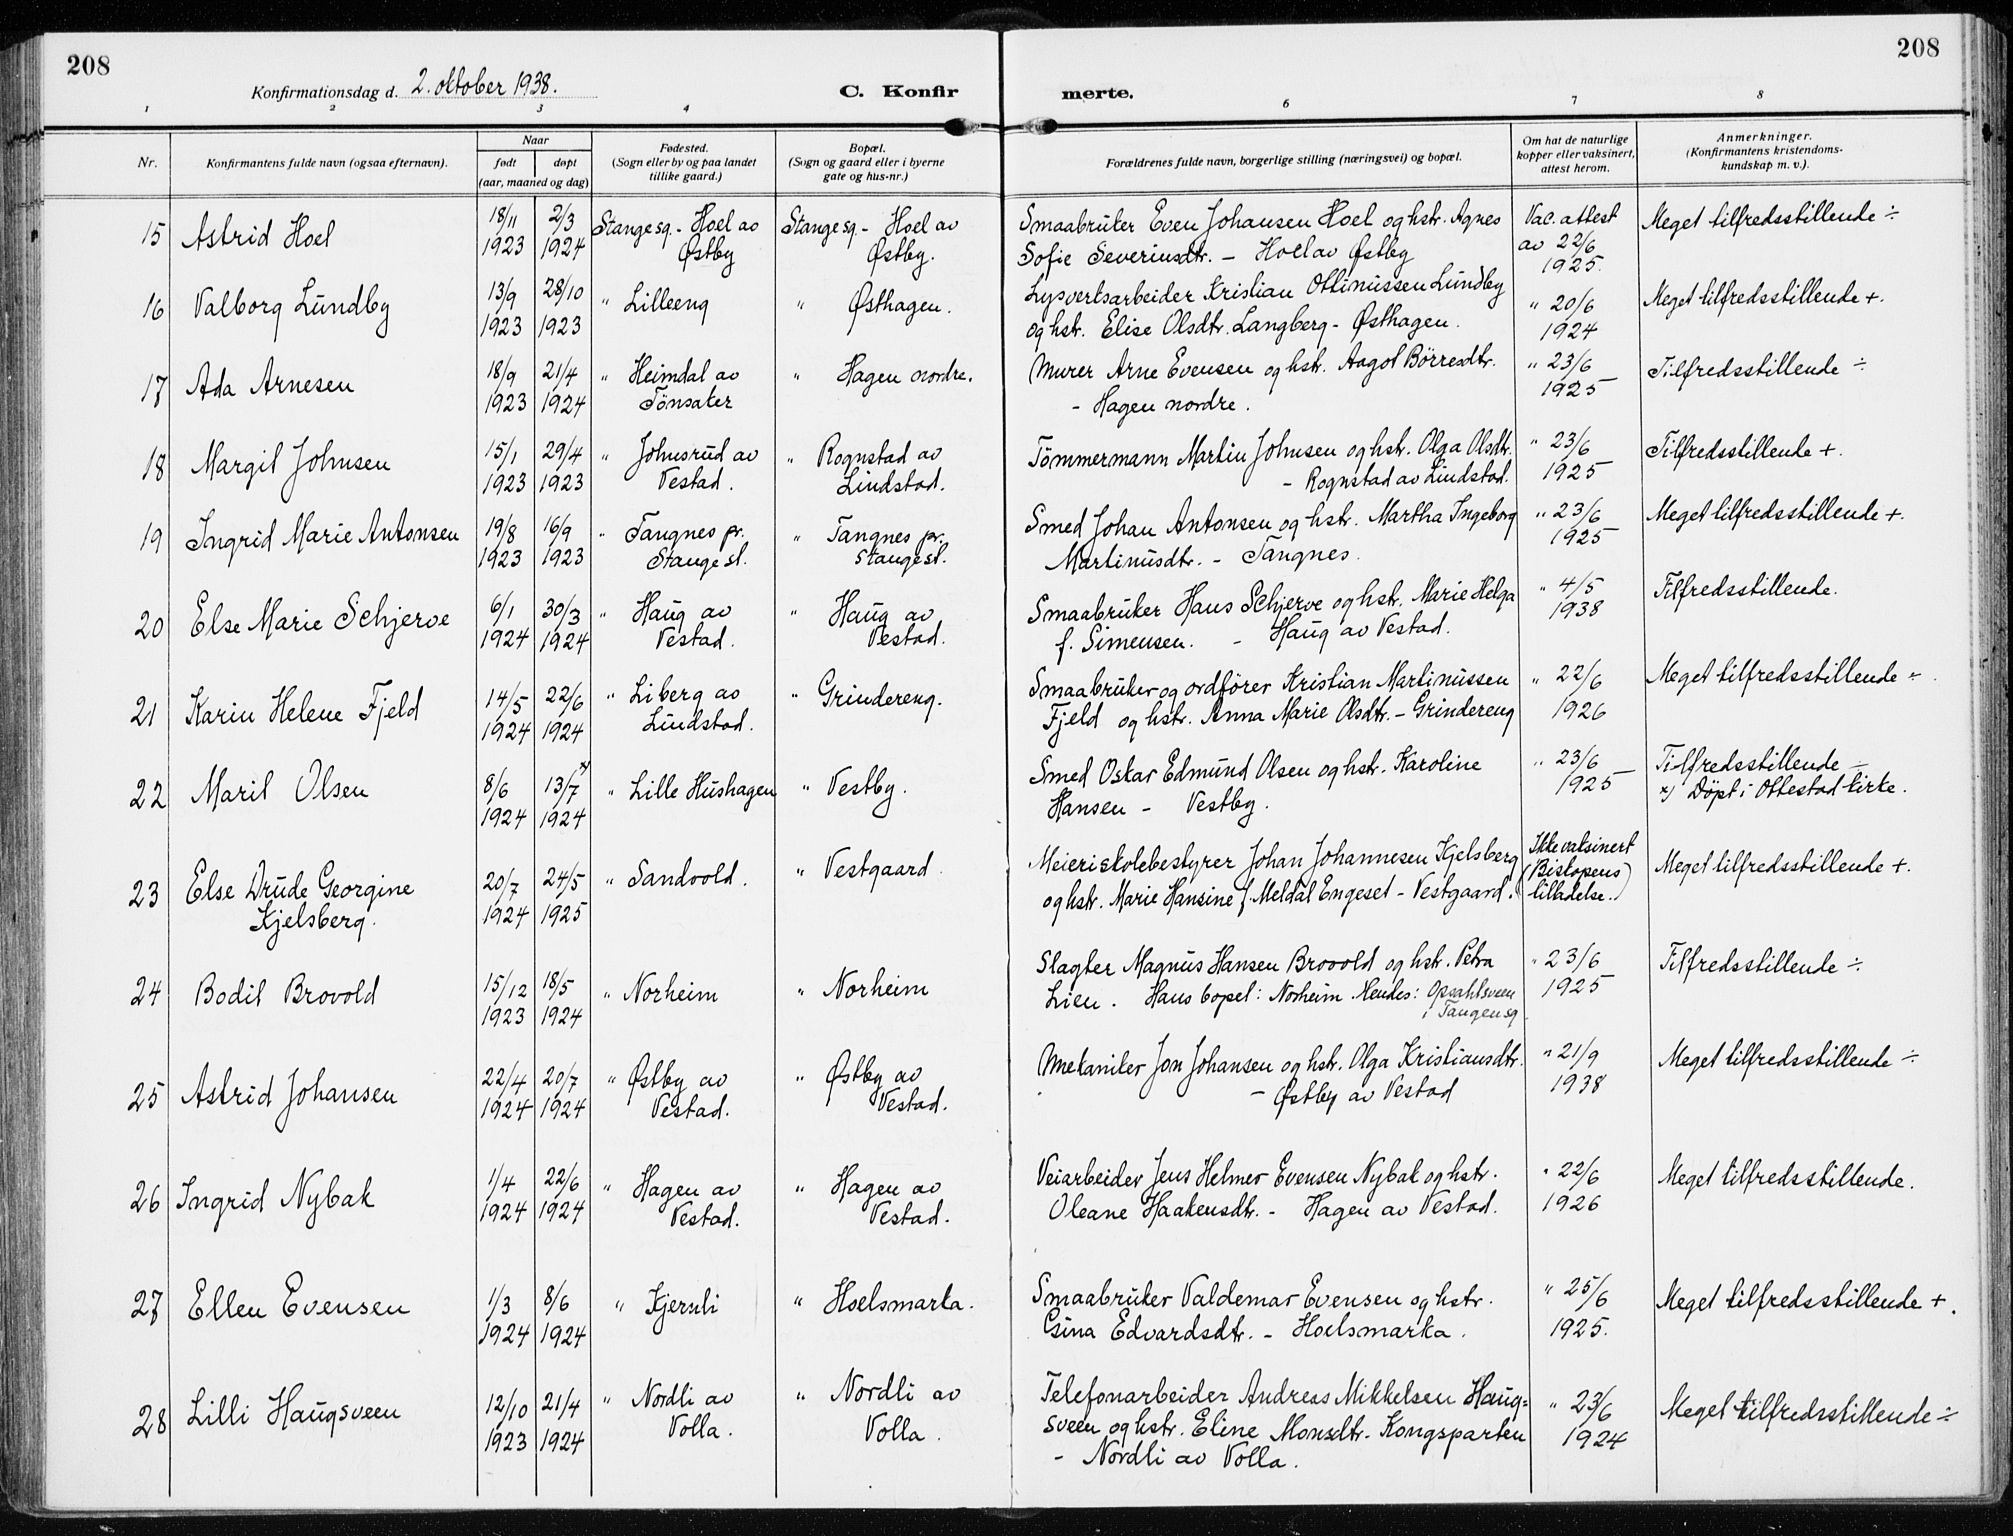 208
208
Konfirmationsdag d. 2. oktober 1938.
C. Konfir
merte.
1 2 3 4 5 6 7 8
Nr.
Konfirmantens fulde navn (ogsaa efternavn).
Naar
født
døpt
(aar, maaned og dag)
Fødested.
(Sogn eller by og paa landet
tillike gaard.)
Bopæl.
(Sogn og gaard eller i byerne
gate og hus-nr.)
Forældrenes fulde navn, borgerlige stilling (næringsvei) og bopæl.
Om hat de naturlige
kopper eller vaksinert,
attest herom.
Anmerkninger.
(Konfirmantens kristendoms-
kundskap m. v.).
15 Astrid Hoel 18/11 2/3 Stange sg. - Hoel av Stange sg. - Hoel av Smaabruker Even Johansen Hoel og hstr. Agnes Vac. attest Meget tilfredsstillende ÷
1923 1924 Østby Østby. Sofie Severinsdtr. - Hoel av Østby av 22/6
1925.
16 Valborg Lundby 13/9 28/10 " Lilleeng " Østhagen. Lysverksarbeider Kristian Ottinussen Lundby " 20/6 Meget tilfredsstillende +.
1923 1923 og hstr. Elise Olsdtr. Langberg - Østhagen. 1924
17 Ada Arnesen 18/9 21/4 " Heimdal av " Hagen nordre. Murer Arne Evensen og hstr. Aagot Børresdtr. " 23/6 Tilfredsstillende ÷
1923 1924 Tønsaker - Hagen nordre. 1925
18 Margit Johnsen 15/1 29/4 " Johnsrud av " Rognstad av Tømmermann Martin Johnsen og hstr. Olga Olsdtr. " 23/6 Tilfredsstillende +.
1923 1923 Vestad. Lindstad. - Rognstad av Lindstad. 1925
19 Ingrid Marie Antonsen 19/8 16/9 " Tangnes pr. " Tangnes pr. Smed Johan Antonsen og hstr. Martha Ingeborg " 23/6 Meget tilfredsstillende +.
1923 1923 Stange st. Stange st. Martinusdtr. - Tangnes. 1925
20 Else Marie Schjerve 6/1 30/3 " Haug av " Haug av Smaabruker Hans Schjerve og hstr. Marie Helga " 4/5 Tilfredsstillende.
1924 1924 Vestad. Vestad. f. Simensen. - Haug av Vestad. 1938
21 Karin Helene Fjeld 14/5 22/6 " Liberg av " Grindereng. Smaabruker og ordfører Kristian Martinussen " 22/6 Meget tilfredsstillende ÷.
1924 1924 Lindstad. Fjeld og hstr. Anna Marie Olsdtr. - Grindereng 1926
22 Marit Olsen 8/6 13/7 x) " Lille Hushagen " Vestby. Smed Oskar Edmund Olsen og hstr. Karoline " 23/6 Tilfredsstillende ÷
1924 1924 Hansen - Vestby. 1925 x) Døpt i Ottestad kirke.
23 Else Drude Georgine 20/7 24/5 " Sandvold. " Vestgaard. Meieriskolebestyrer Johan Johannesen Kjelsberg Ikke vaksinert Meget tilfredsstillende +.
Kjelsberg. 1924 1925 og hstr. Marie Hansine f. Meldal Engeset - Vestgaard. (Biskopens
tilladelse.)
24 Bodil Brovold 15/12 18/5 " Norheim " Norheim Slagter Magnus Hansen Brovold og hstr. Petra " 23/6 Tilfredsstillende ÷.
1923 1924 Lien. Hans bopel: Norheim. Hendes: Opsahlsveen 1925
i Tangen sg.
25 Astrid Johansen 22/4 20/7 " Østby av " Østby av Mekaniker Jon Johansen og hstr. Olga Kristiansdtr. " 21/9 Meget tilfredsstillende ÷
1924 1924 Vestad. Vestad. - Østby av Vestad 1938
26 Ingrid Nybak 1/4 22/6 " Hagen av " Hagen av Veiarbeider Jens Helmer Evensen Nybak og hstr. " 22/6 Meget tilfredsstillende.
1924 1924 Vestad. Vestad. Oleane Haakensdtr. - Hagen av Vestad. 1926
27 Ellen Evensen 1/3 8/6 " Kjernli " Hoelsmarka. Smaabruker Valdemar Evensen og hstr. " 25/6 Meget tilfredsstillende +.
1924 1924 Gina Edvardsdtr. - Hoelsmarka. 1925.
28 Lilli Haugsveen 12/10 21/4 " Nordli av " Nordli av Telefonarbeider Andreas Mikkelsen Haug= " 23/6 Meget tilfredsstillende ÷
1923 1924 Volla. Volla. sveen og hstr. Eline Monsdtr. Kongsparten 1924
- Nordli av Volla.